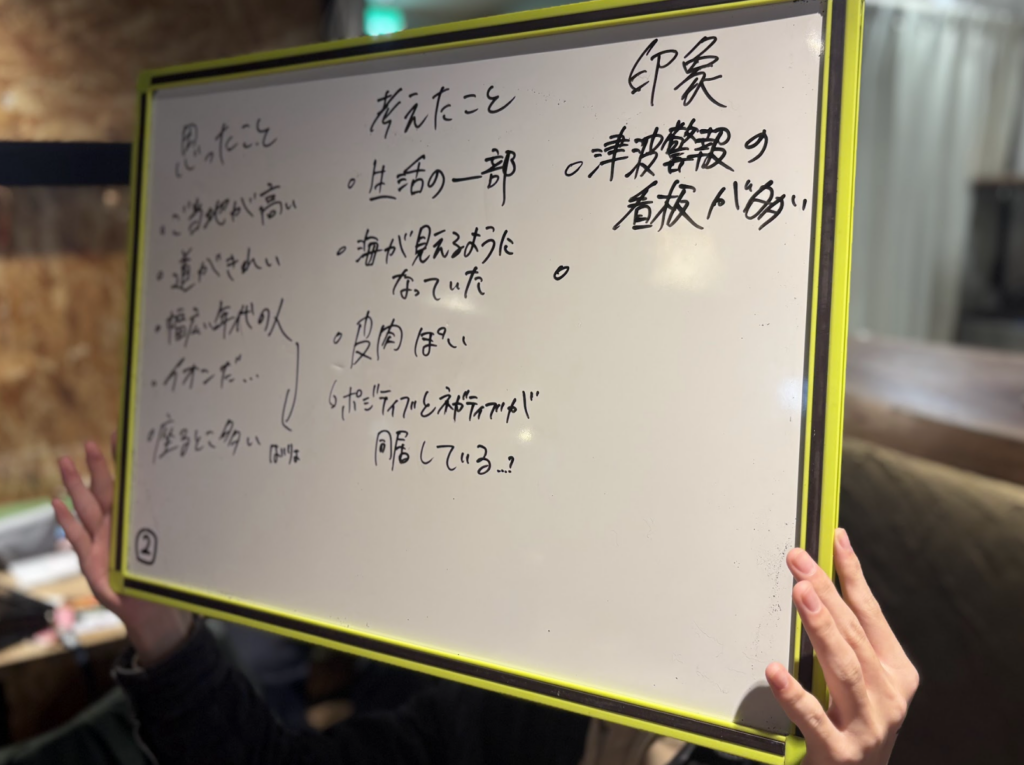 思ったこと
・ご当地が高い
・道がきれい
・幅広い年代の人
・イオンだ…
・座るとこ多い
②
考えたこと
・生活の一部
・海が見えるように
なっていた
・皮肉ぽい
ポジティブとネガティブが
同居している…?
印象
・津波警報の
看板が多い
・